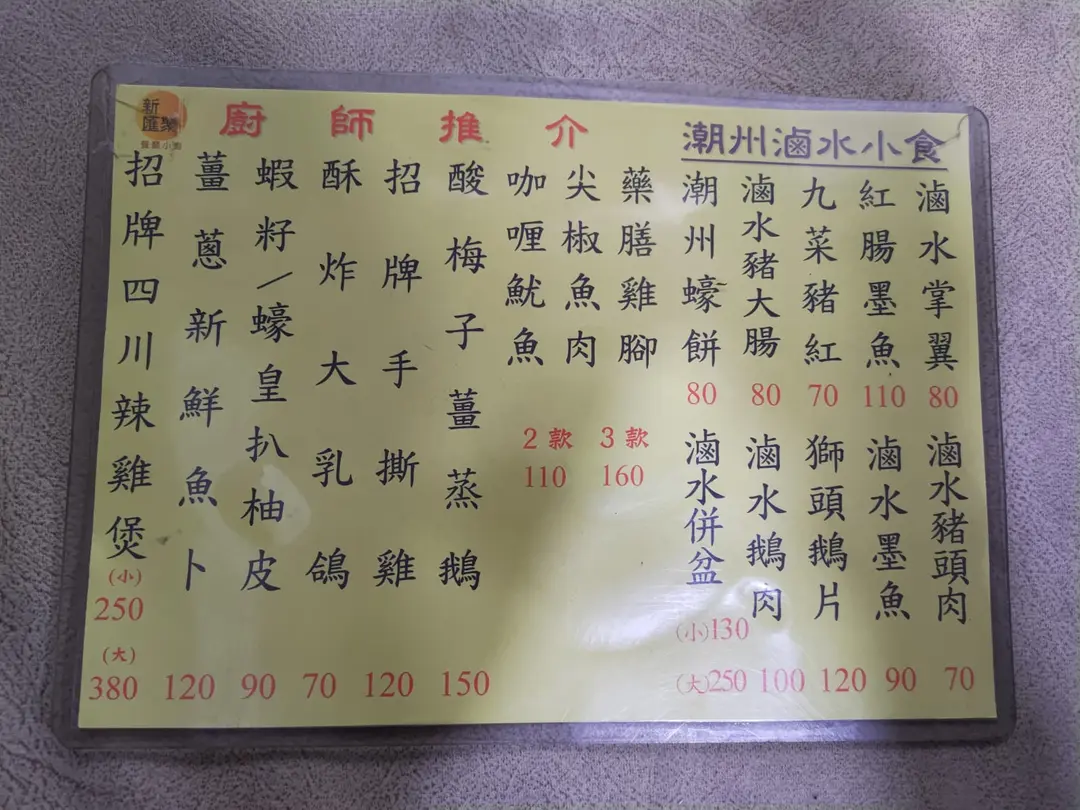 新
匯聚
廚師推介
潮州滷水小食
招牌四川辣雞煲
(小)
250
(大)
380
薑蔥新鮮魚卜
120
蝦籽/蠔皇扒柚皮
90
酥炸大乳鴿
70
招牌手撕雞
120
酸梅子薑蒸鵝
150
咖喱魷魚
尖椒魚肉
藥膳雞腳
2款
110
3款
160
潮州蠔餅
80
滷水豬大腸
80
九菜豬紅
70
紅腸墨魚
110
滷水掌翼
80
滷水併盆
(小)130
(大)250
滷水鵝肉
100
獅頭鵝片
120
滷水墨魚
90
滷水豬頭肉
70